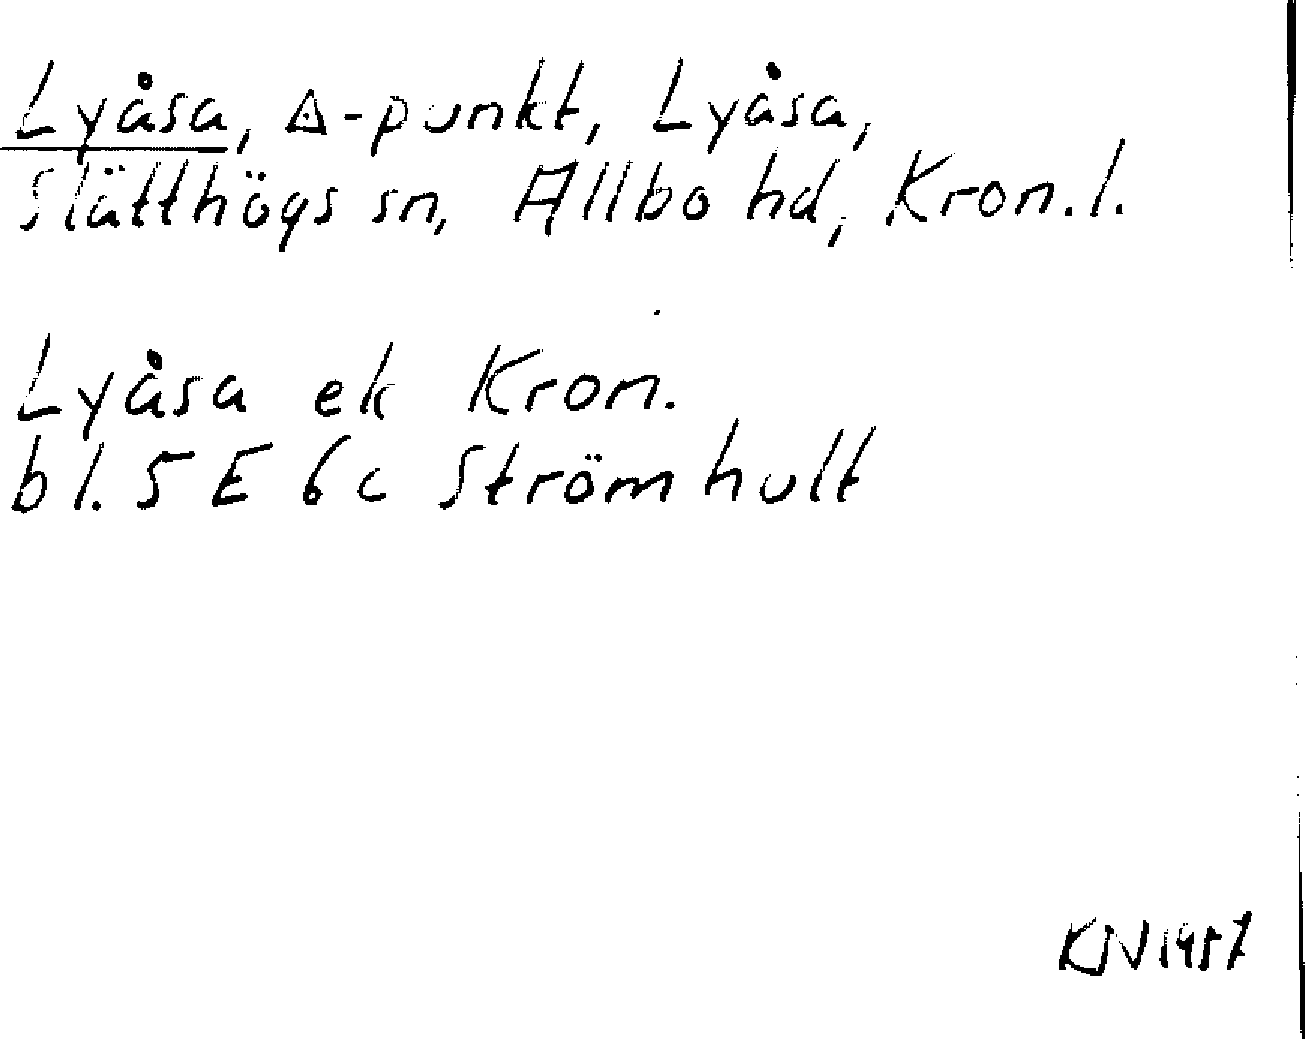 Lyåsa, ∆-punkt, Lyåsa,
Slätthögs sn, Allbo hd, Kron.l.
Lyåsa ek Kron.
bl. 5 E 6c Strömhult